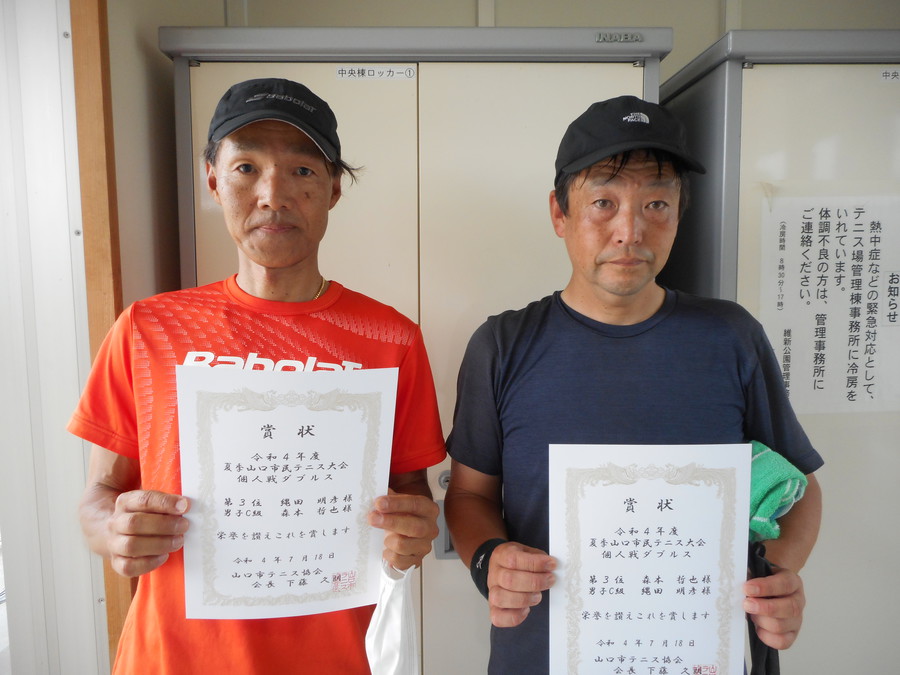 INABA
中央棟ロッカー①
中央
Babolat
THE NORTH FACE
Babolat
お知らせ
熱中症などの緊急対応として、
テニス場管理棟事務所に冷房を
いれています。
体調不良の方は、管理事務所に
ご連絡ください。
（冷房時間 8時30分~17時）
維新公園管理事務
賞状
令和4年度
夏季山口市民テニス大会
個人戦ダブルス
第3位 縄田 明彦様
男子C級 森本 哲也様
栄誉を讃えこれを賞します
令和 4年 7月 18日
山口市テニス協会
会長 下藤 久
賞状
令和4年度
夏季山口市民テニス大会
個人戦ダブルス
第3位 森本 哲也様
男子C級 縄田 明彦様
栄誉を讃えこれを賞します
令和 4年 7月 18日
山口市テニス協会
会長 下藤 久